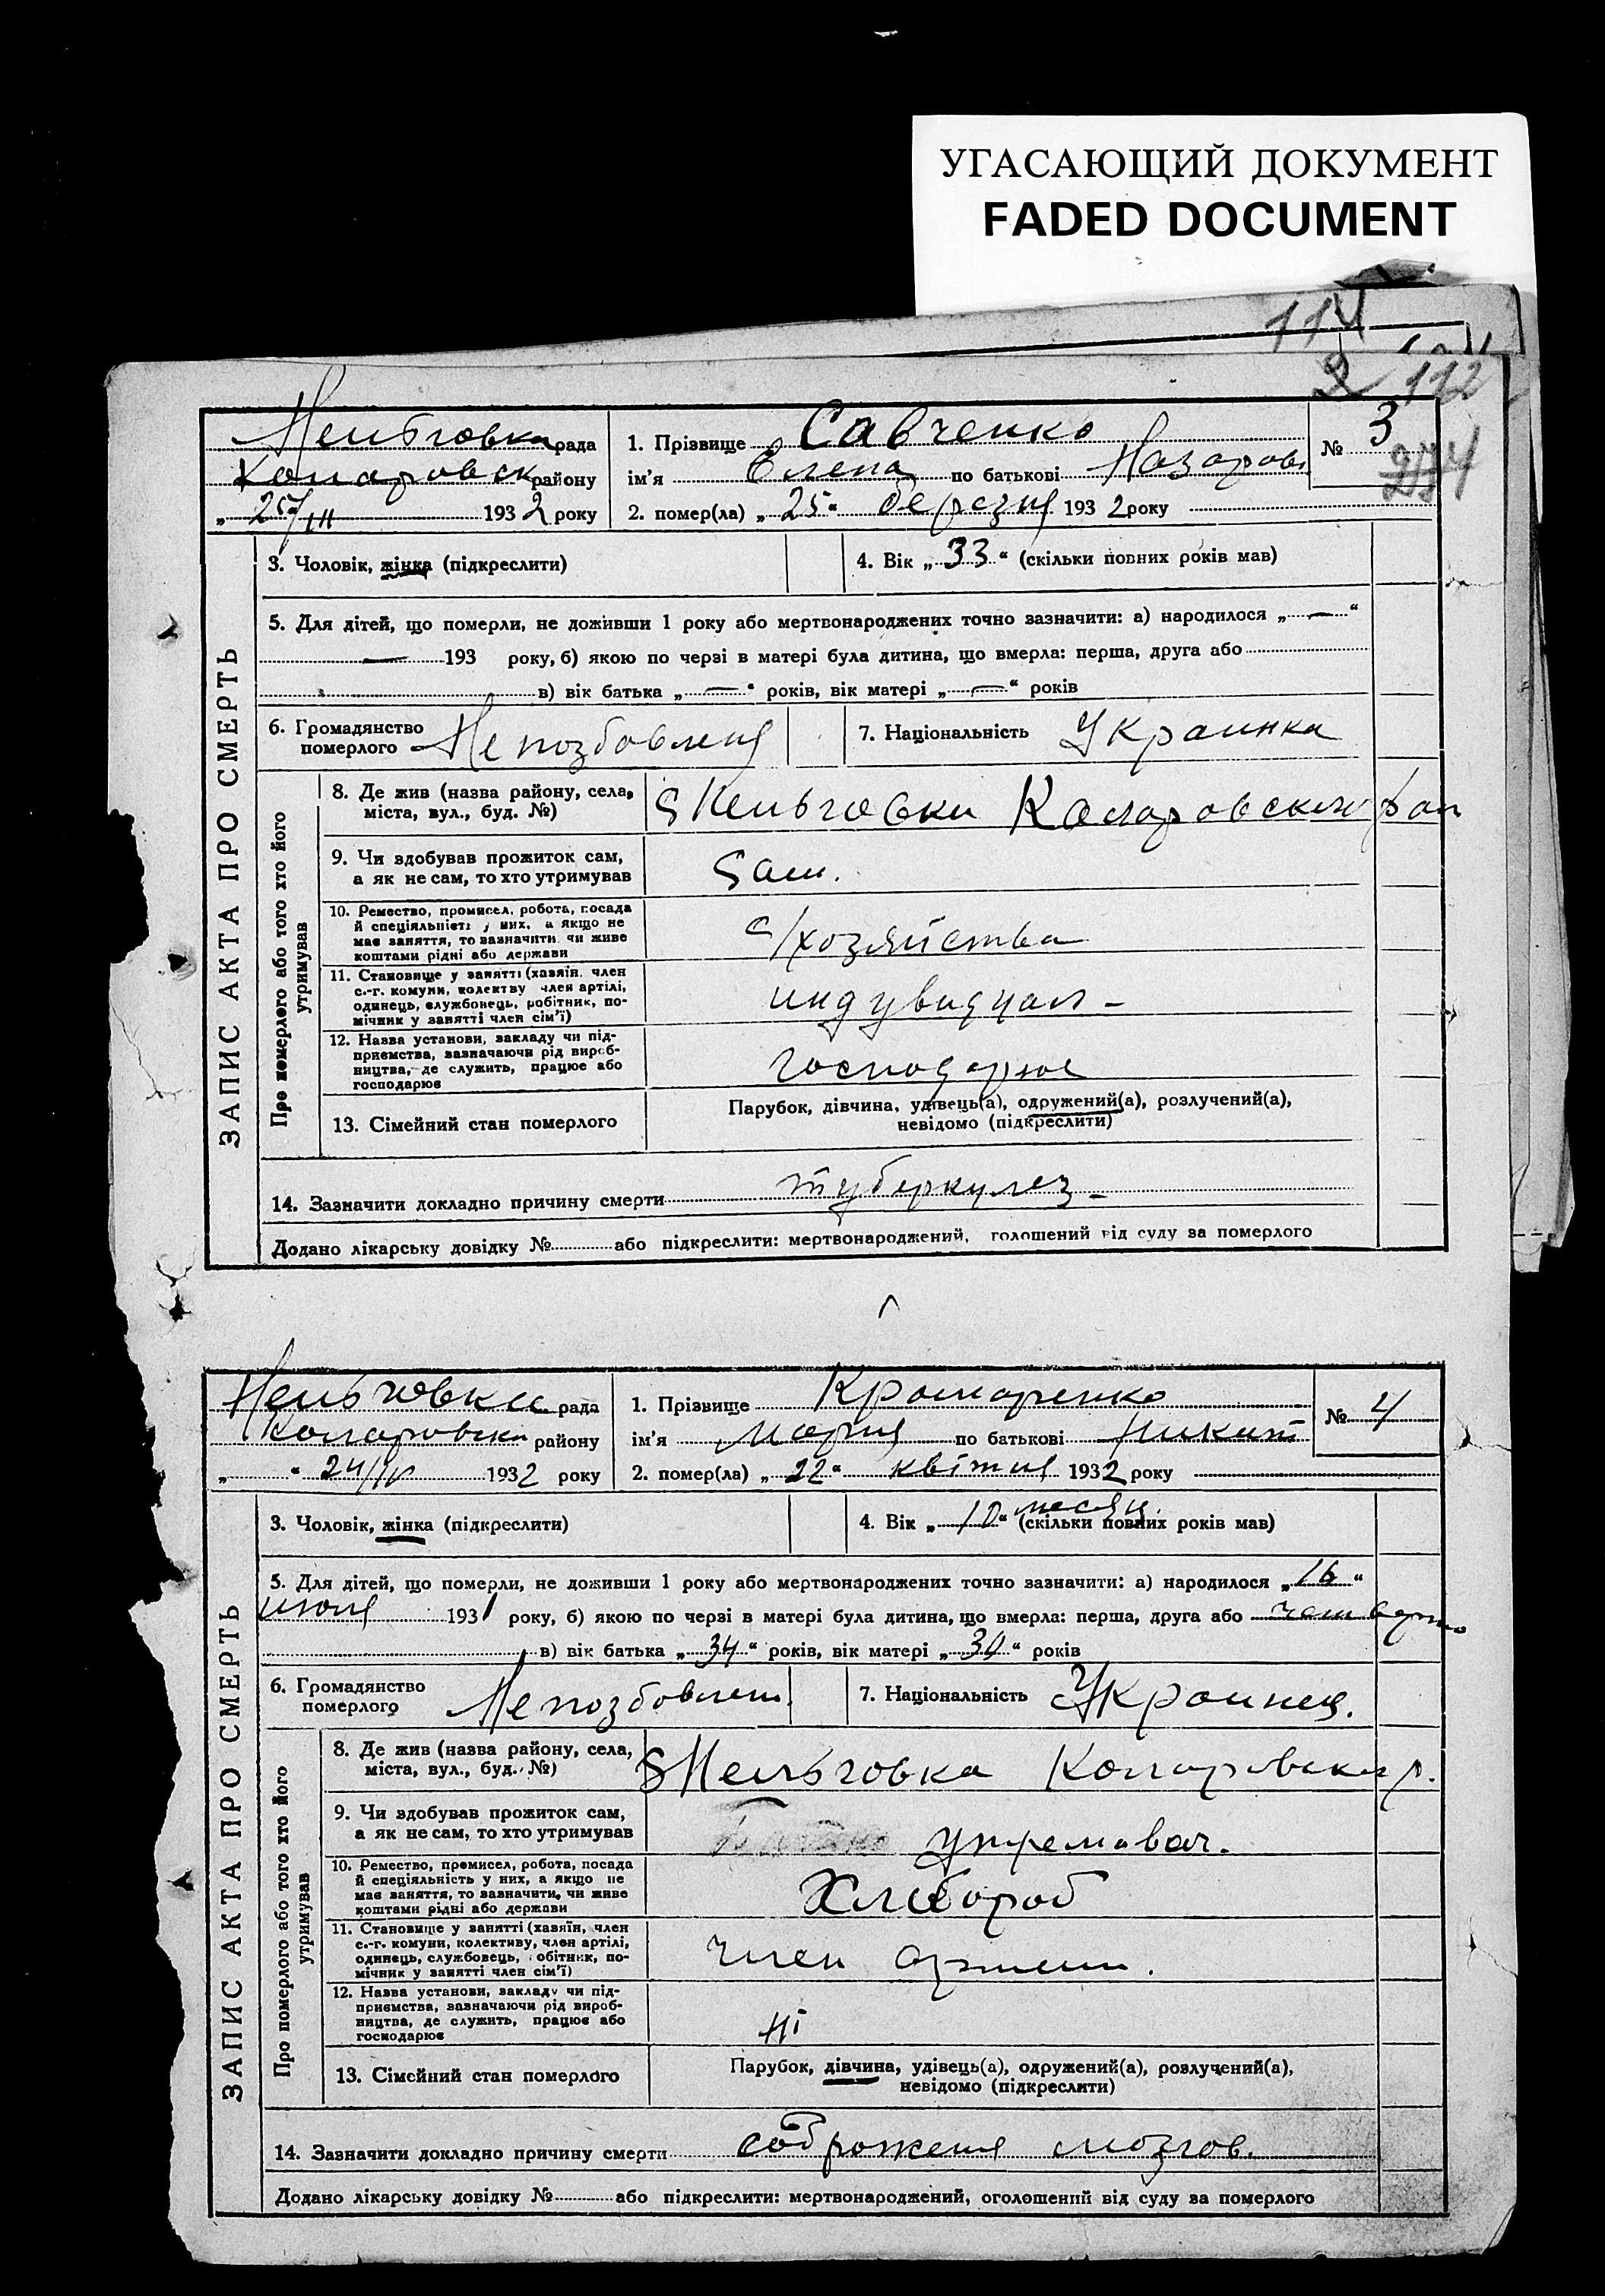 УГАСАЮЩИЙ ДОКУМЕНТ
FADED DOCUMENT
114
112
рада
району
„ 25/III 1932 року
1. Прізвище Савченко
ім'я Елена по батькові Назаровн
2. помер(ла) „ 25 “ березня 1932 року
№ 3
ЗАПИС АКТА ПРО СМЕРТЬ
3. Чоловік, жінка (підкреслити)
4. Вік „ 33 “ (скільки повних років мав)
5. Для дітей, що померли, не доживши 1 року або мертвонароджених точно зазначити: а) народилося „ — “
— 193 року, б) якою по черзі в матері була дитина, що вмерла: перша, друга або
в) вік батька „ — “ років, вік матері „ — “ років
6. Громадянство
померлого Непозбавленя
7. Національність Украинка
Про померлого або того хто його
утримував
8. Де жив (назва району, села,
міста, вул., буд. №)
9. Чи здобував прожиток сам,
а як не сам, то хто утримував
Sам.
10. Ремество, промисел, робота, посада
й спеціяльність у них, а якщо не
має заняття, то зазначити, чи живе
коштами рідні або держави
с/хозяйства
11. Становище у занятті (хазяїн, член
с.-г. комуни, колективу член артілі,
одинець, службовець, робітник, по-
мічник у занятті член сім'ї)
индувидуал-
12. Назва установи, закладу чи під-
приємства, зазначаючи рід вироб-
ництва, де служить, працює або
господарює
господарює
13. Сімейний стан померлого
Парубок, дівчина, удівець(а), одружений(а), розлучений(а),
невідомо (підкреслити)
14. Зазначити докладно причину смерти туберкулез-
Додано лікарську довідку № або підкреслити: мертвонароджений, голошений від суду за померлого
рада
району
„ “ 24/IV 1932 року
1. Прізвище Крамаренко
ім'я Мария по батькові Никит
2. помер(ла) „ 22 “ квітня 1932 року
№ 4
ЗАПИС АКТА ПРО СМЕРТЬ
3. Чоловік, жінка (підкреслити)
месяц.
4. Вік „ 10 “ (скільки повних років мав)
5. Для дітей, що померли, не доживши 1 року або мертвонароджених точно зазначити: а) народилося „ 16 “
июня 1931 року, б) якою по черзі в матері була дитина, що вмерла: перша, друга або
в) вік батька „ 34 “ років, вік матері „ 30 “ років
6. Громадянство
померлого Непозбавлен.
7. Національність
Про померлого або того хто його
утримував
8. Де жив (назва району, села,
міста, вул., буд. №)
9. Чи здобував прожиток сам,
а як не сам, то хто утримував
Батько утремовач.
10. Ремество, промисел, робота, посада
й спеціяльність у них, а якщо не
має заняття, то зазначити, чи живе
коштами рідні або держави
Хлебороб
11. Становище у занятті (хазяїн, член
с.-г. комуни, колективу, член артілі,
одинець, службовець, обітник, по-
мічник у занятті член сім'ї)
член артели.
12. Назва установи, закладу чи під-
приємства, зазначаючи рід вироб-
ництва, де служить, працює або
господарює
Ні
13. Сімейний стан померлого
Парубок, дівчина, удівець(а), одружений(а), розлучений(а),
невідомо (підкреслити)
14. Зазначити докладно причину смерти мозгов.
Додано лікарську довідку № або підкреслити: мертвонароджений, оголошений від суду за померлого